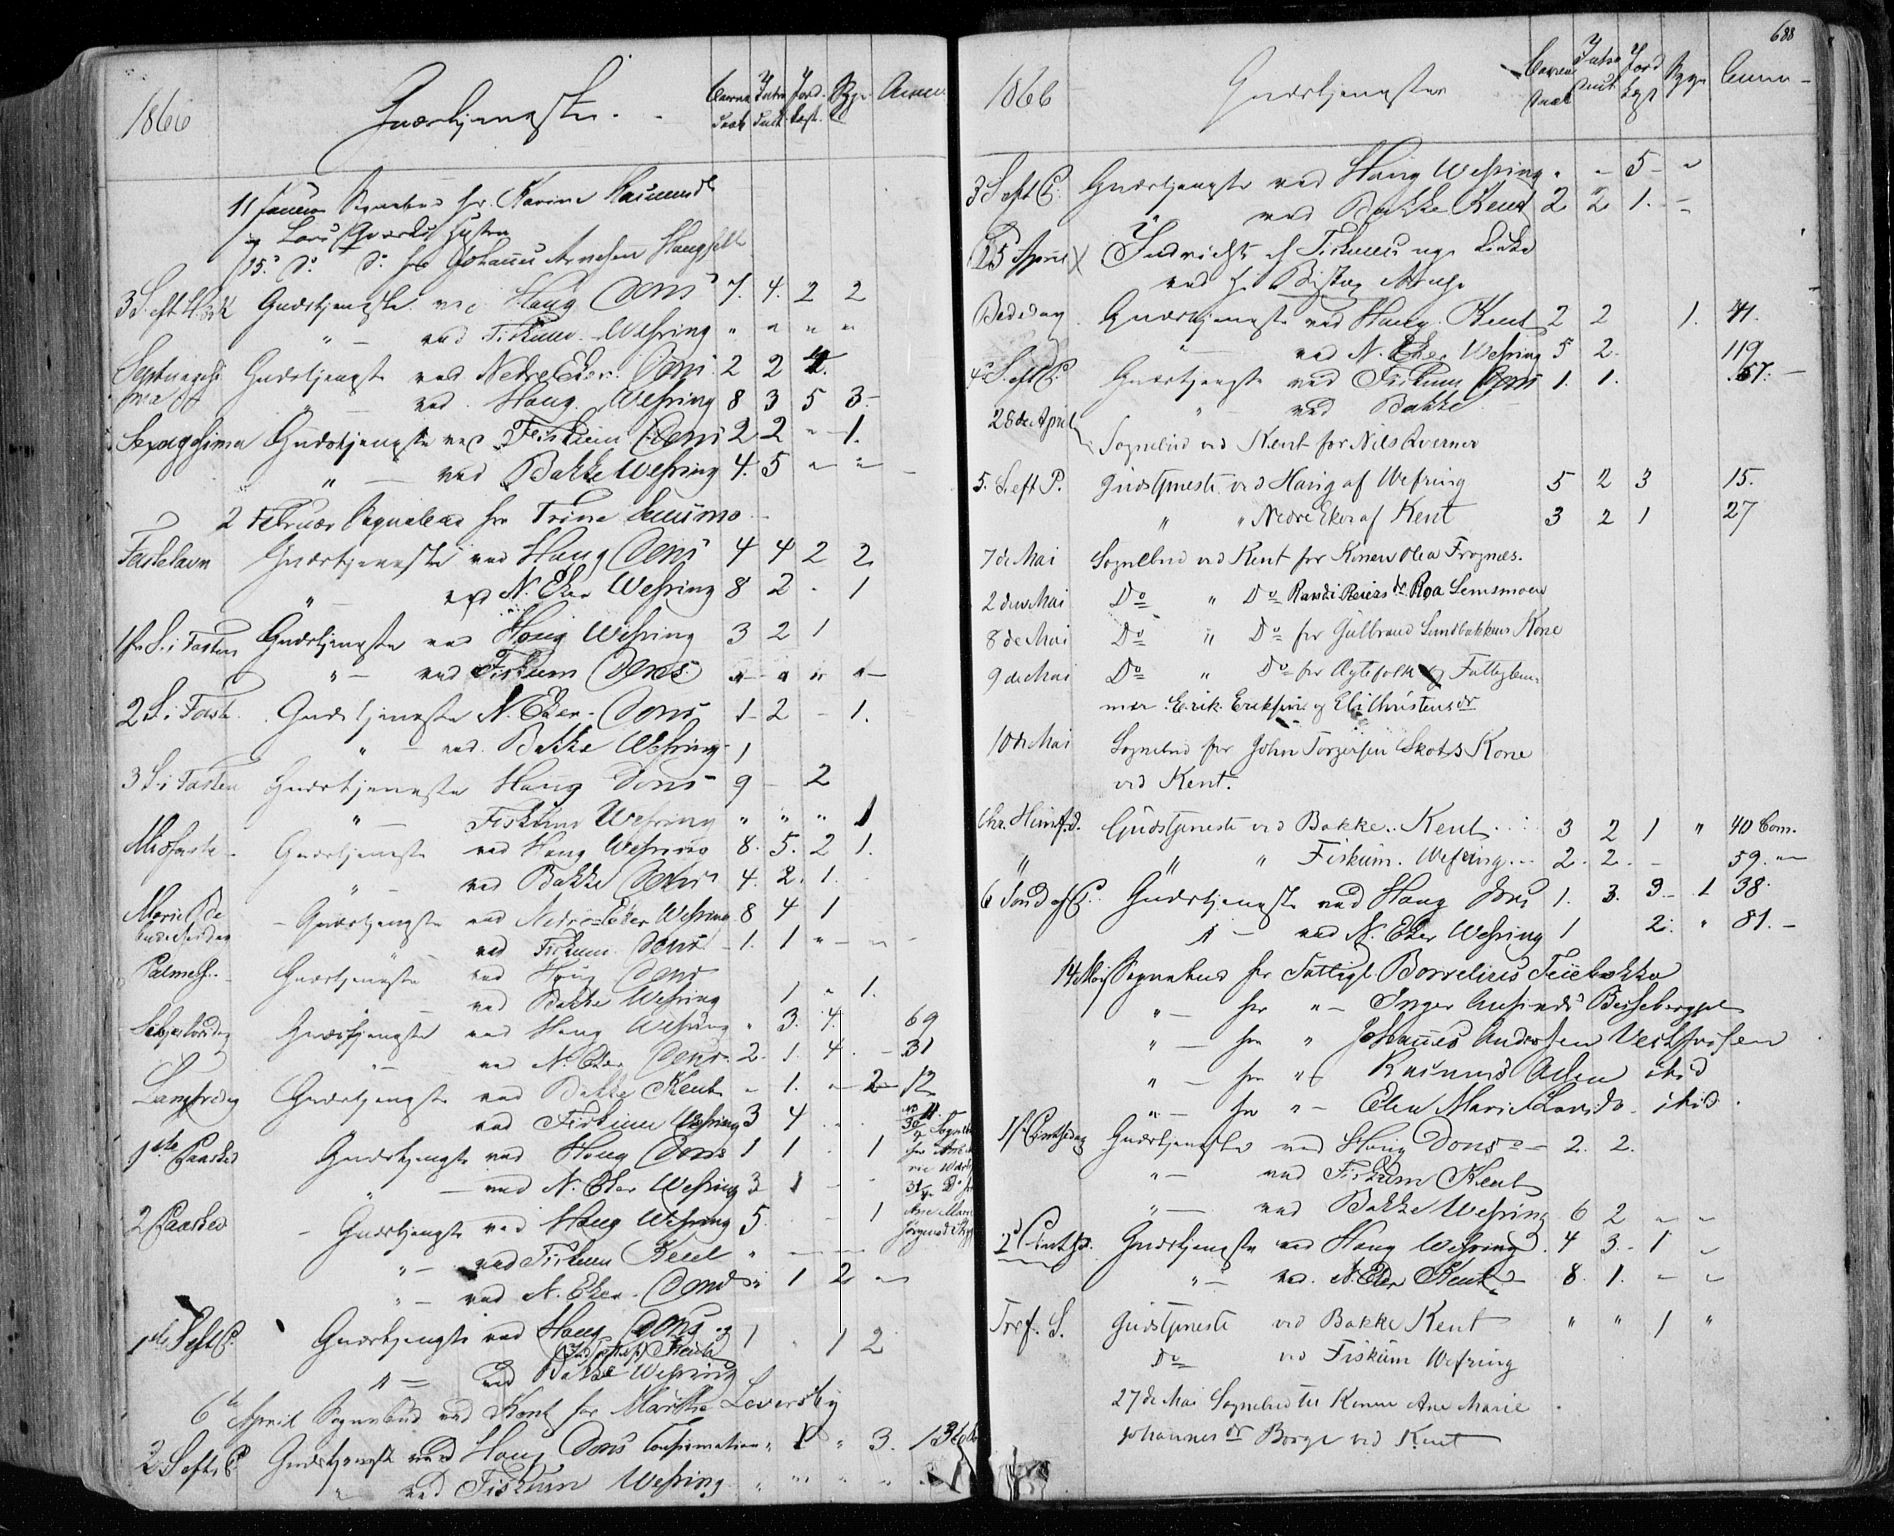 1866 Gudstjeneste.
11 Januar Sognebud for Karine Rasmusdr
og Lars Hustru
15. Do Do for Johannes Arnesen
3 S. eft. H. 3 K. Gudstjeneste ved Haug Dons 7. 4. 2 2
" — ved Fiskum Wefring " " " "
Septuagesima Gudstjeneste ved Nedre Eker. Dons 2 2
" ved Haug. Wefring 8 3 5 3.
Sexagesima Gudstjeneste ved Fiskum Dons 2 2 " 1.
" — ved Bakke Wefring 4. 5 " "
2 Februar Sognebud for Trine Semsmo
Fastelavn Gudstjeneste ved Haug Dons 4 4 2 2
" — ved N. Eker Wefring 8 2 - 1
1ste S. i Fasten Gudstjeneste ved Haug Wefring 3 2 1
" — ved Fiskum Dons. " " " "
2 S. i Faste. Gudstjeneste N. Eker. Dons 1 - 2 - 1.
" — ved Bakke Wefring 1
3 S. i Fasten Gudstjeneste Haug Dons 9 - 2
" — Fiskum Wefring " " " 1
Midfaste Gudstjeneste ved Haug Wefring 8. 5. 2 1.
" — ved Bakke Dons 4. 2. 1.
Mariæ Bebudelsesdag Gudstjeneste ved Nedre Eker Wefring 8 4 1
" ved Fiskum Dons 1. 1 " — "
Palmes. Gudstjeneste ved Haug Dons
" — ved Bakke Wefring 1 " 1.
Skjertorsdag Gudstjeneste ved Haug Wefring " 3. 4. 69
" — ved N. Eker Dons 2. 1. 4. - 31
Langfredag Gudstjeneste ved Bakke Kent - 1. - 2 - 12
ved Fiskum Wefring 3 4
1ste Paasked Gudstjeneste ved Haug Dons 1 1 . 1
" — ved N. Eker Wefring 3 1
2 Paasked — Gudstjeneste ved Haug Wefring 5. 1
" — ved Fiskum Kent "
" — ved N. Eker. Dons " 1 2 "
1ste S. eft. P. Gudstjeneste ved Haug Dons og 1 . 1 2
Kent
" — ved Bakke Wefring
6te April Sognebud ved Kent for Marthe Leversby
2 S. eft. P. Gudstjeneste ved Haug Dons Confirmation " " 3. 136
" ved Fiskum Wefring. " " " "
688
1866 Gudstjenester
3 S. eft P. Gudstjeneste ved Haug Wefring " - 5 - "
" ved Bakke Kent 2 2 1. -
25 April Indvielse af Fiskums nye Kirke
ved Hr Biskop Arup
Bededag Gudstjeneste ved Haug. Kent 2 2 1. 41.
" — ved N. Eker Wefring 5 2. 119
4de S. eft P. Gudstjeneste ved Fiskum Dons 1. 1. 57. —
" — ved Bakke
28 de April Sognebud ved Kent for Nils Kverner
5. S. eft P. Gudstjeneste ved Haug af Wefring 5 2 3 15.
" " Nedre Eker af Kent 3 2 1 27
7 de Mai Sognebud ved Kent for Konen Olea Frognæs.
2 den Mai Do " Do Randi Reiersdr Roa Semsmoen
8 de Mai Do " Do for Gulbrand Sundbakkens Kone
9 de Mai Do " Do for Ægtefolk og Fattiglemmer
Erik Eriksen og Eli Christensdr
10 de Mai Sognebud for John Torgersen Skots Kone
ved Kent.
Chr. Himfd. Gudstjeneste ved Bakke.. Kent 3 2 1 " 40 Com.
" " " Fiskum. Wefring... 2. 2. - 59. "
6 Sønd ef P. Gudstjeneste ved Haug Dons 1. 3. 3 - 1 38.
" — ved N. Eker Wefring 1 2. " 81. —
14 Mai Sognebud for Fattigl. Borrelius Teiebakke
" — for " — Inger
" — for " Johannes Andersen Vestfossen
" — for " Rasmus Olsen ibid
" — for " — Elen Marie Larsdr. ibid.
1ste Pintsedag Gudstjeneste ved Haug Dons — 2. 2.
" — ved Fiskum Kent
" — ved Bakke Wefring 6 2 " "
2d Pintsd. Gudstjeneste ved Haug Wefring. 4 3. 1 "
" — ved. N. Eker Kent 8. 1. - "
Tref. S. Gudstjeneste ved Bakke Kent " " 1 "
Do ved Fiskum Wefring
27 de Mai Sognebud til Konen Ane Marie
Johannesdr Borge ved Kent